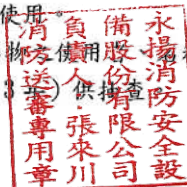 使用。
物 使用
3 ) 供 查
永揚消防安全設
備股份有限公司
負責人：張來川
消防送審專用章